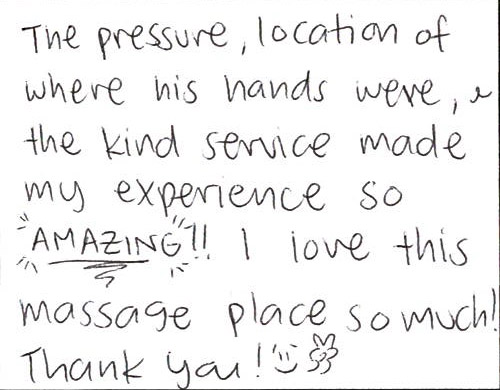 The pressure, location of
where his hands were, &
the kind service made
my experience so
AMAZING!! I love this
massage place so much!
Thank you!